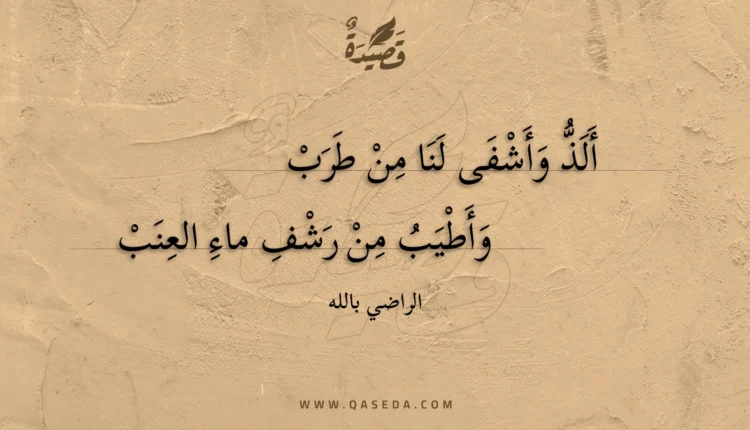 قَصِيدَةٌ
أَلَذُّ وَأَشْفَى لَنَا مِنْ طَرَبْ
وَأَطْيَبُ مِنْ رَشْفِ ماءِ العِنَبْ
الراضي بالله
WWW.QASEDA.COM